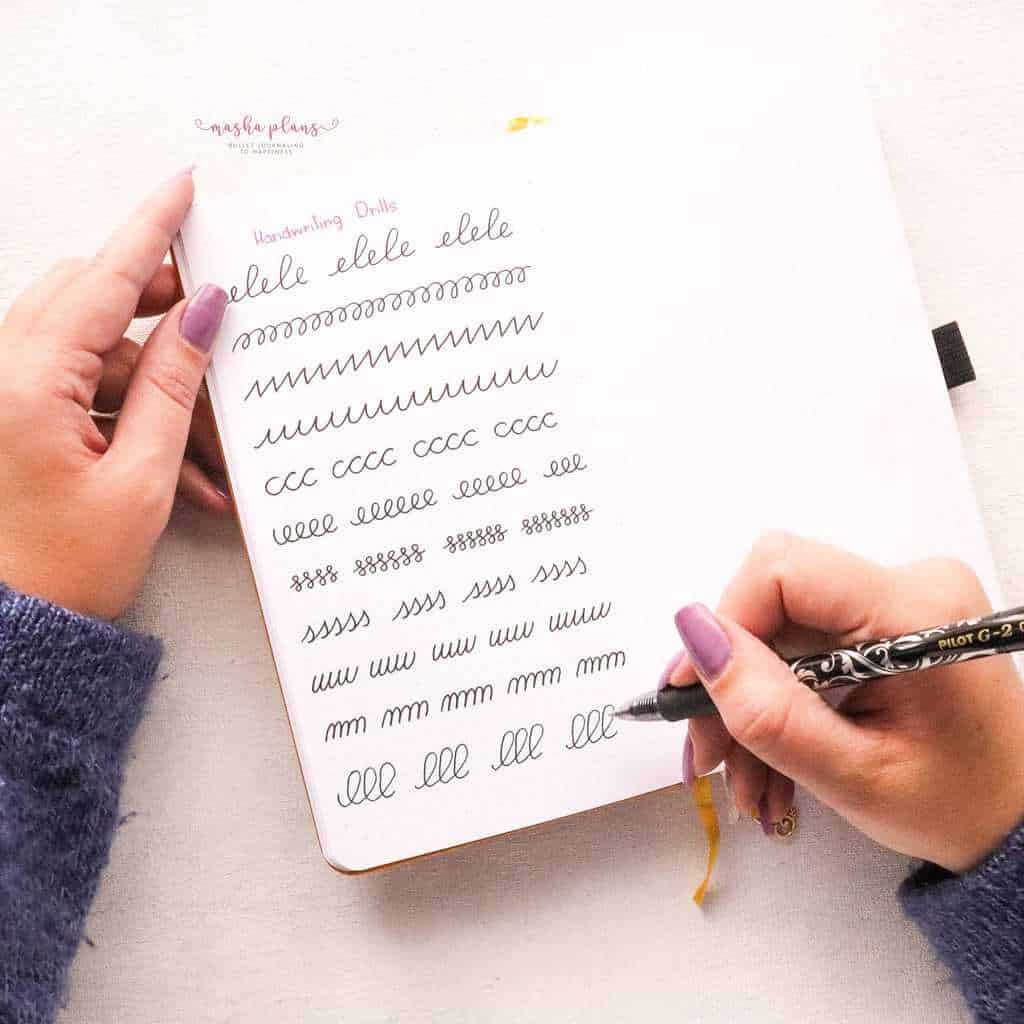 masha plans
BULLET JOURNALING
TO HAPPINESS
Handwriting Drills
elele elele elele
ccc cccc cccc cccc
eeee eeeeee eeeee eee
sssss ssss ssss ssss
uu uuu uuu uuuu
mm mmm mmm mmm mmm
lll lll lll lll
PILOT G-2